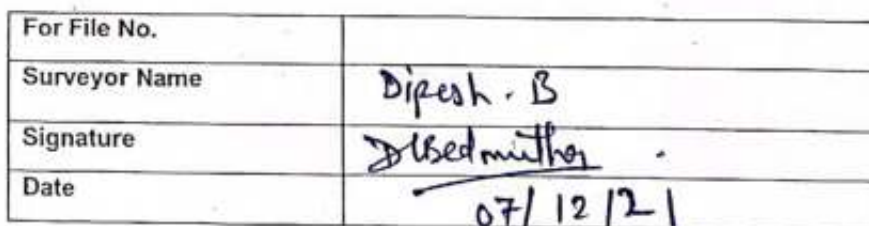 For File No.
Surveyor Name Dipesh. B
Signature DBedmutha
Date 07/12/21